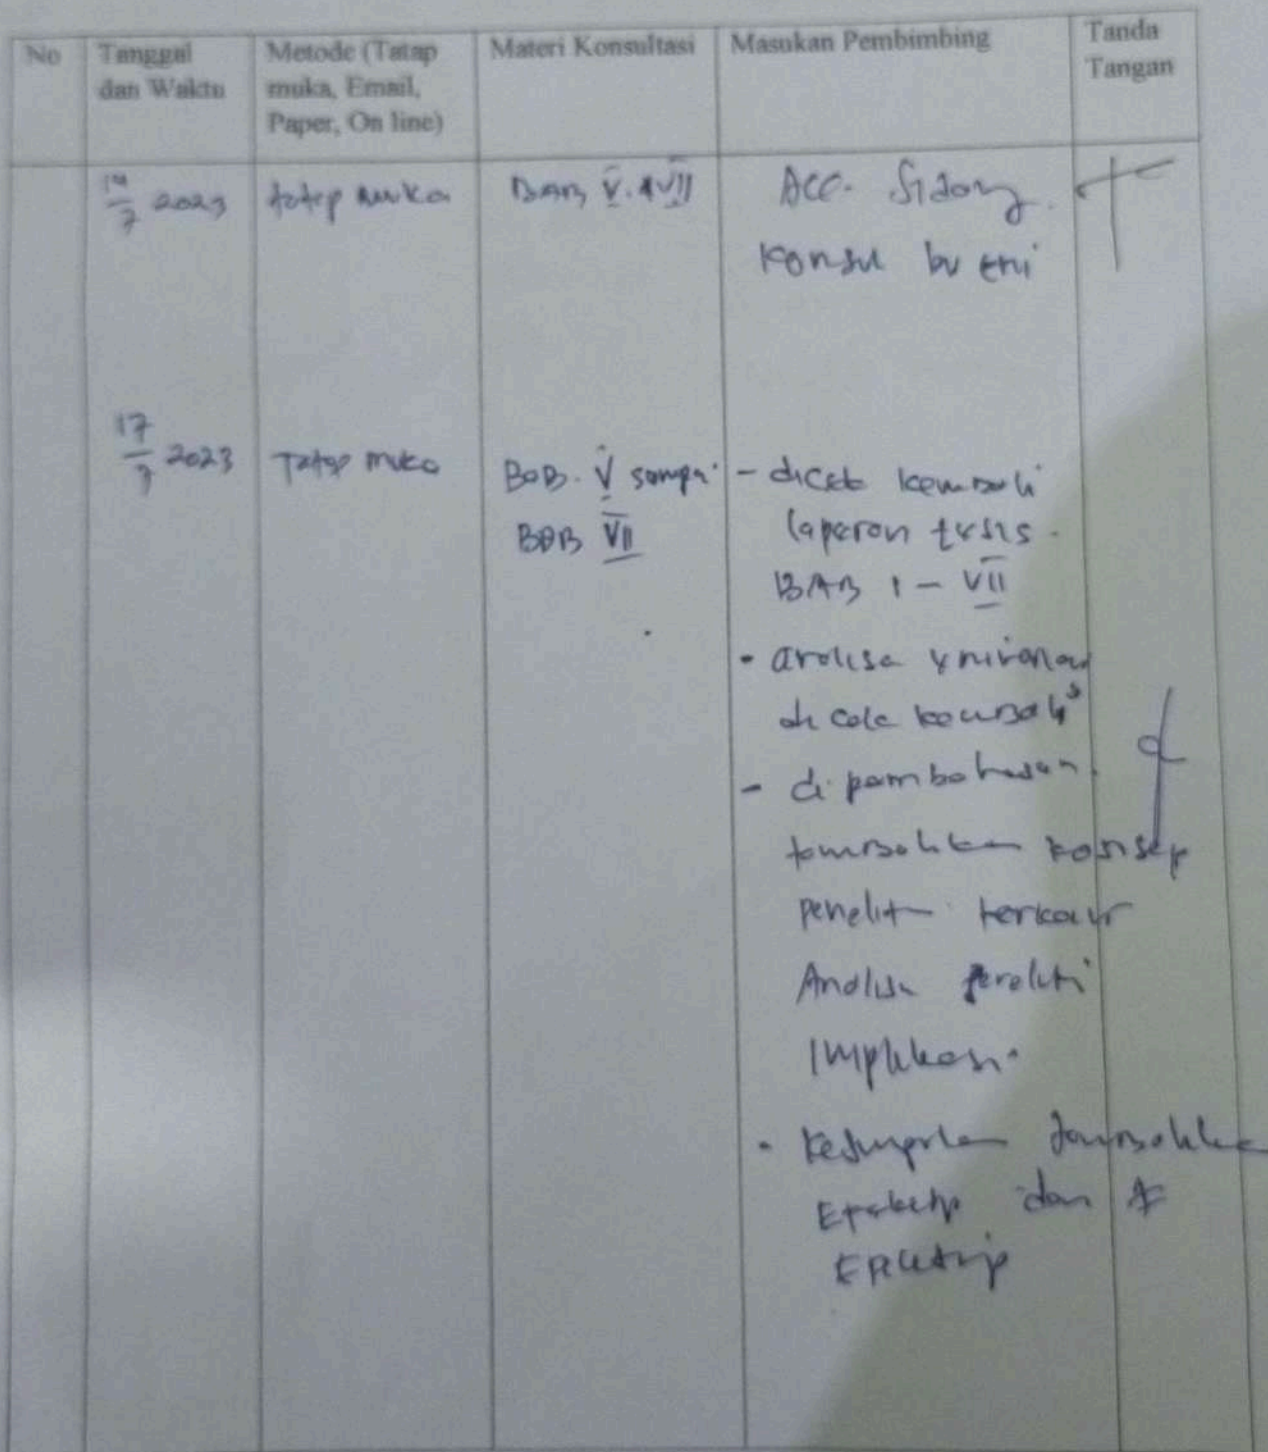 No
Tanggal
dan Waktu
Metode (Tatap
muka, Email,
Paper, On line)
Materi Konsultasi
Masukan Pembimbing
Tanda
Tangan
14/7 2023
tatap muka
BAB V. VII
ACC. Sidang
Konsul bu eni
17/7 2023
Tatap muka
BAB. V sampai
BAB VII
- dicek kembali
laporan tesis.
BAB 1 - VII
- analisa univariat
di cek kembali
- di pembahasan
tambahkan konsep
penelit terkait
Analisa peneliti
Implikasi.
- Kesimpulan tambahkan
dan